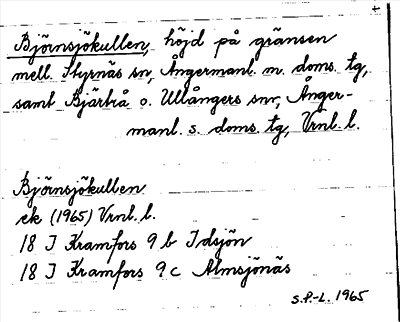 Björnsjökullen, höjd på gränsen
mell. Styrnäs sn, Ångermanl. n. doms. tg,
samt Bjärtrå o. Ullångers snr, Ånger-
manl. s. doms. tg, Vrnl. l.
Björnsjökullen
ek (1965) Vrnl. l.
18 J Kramfors 9 b Idsjön
18 J Kramfors 9 c Almsjönäs
S.P.-L. 1965